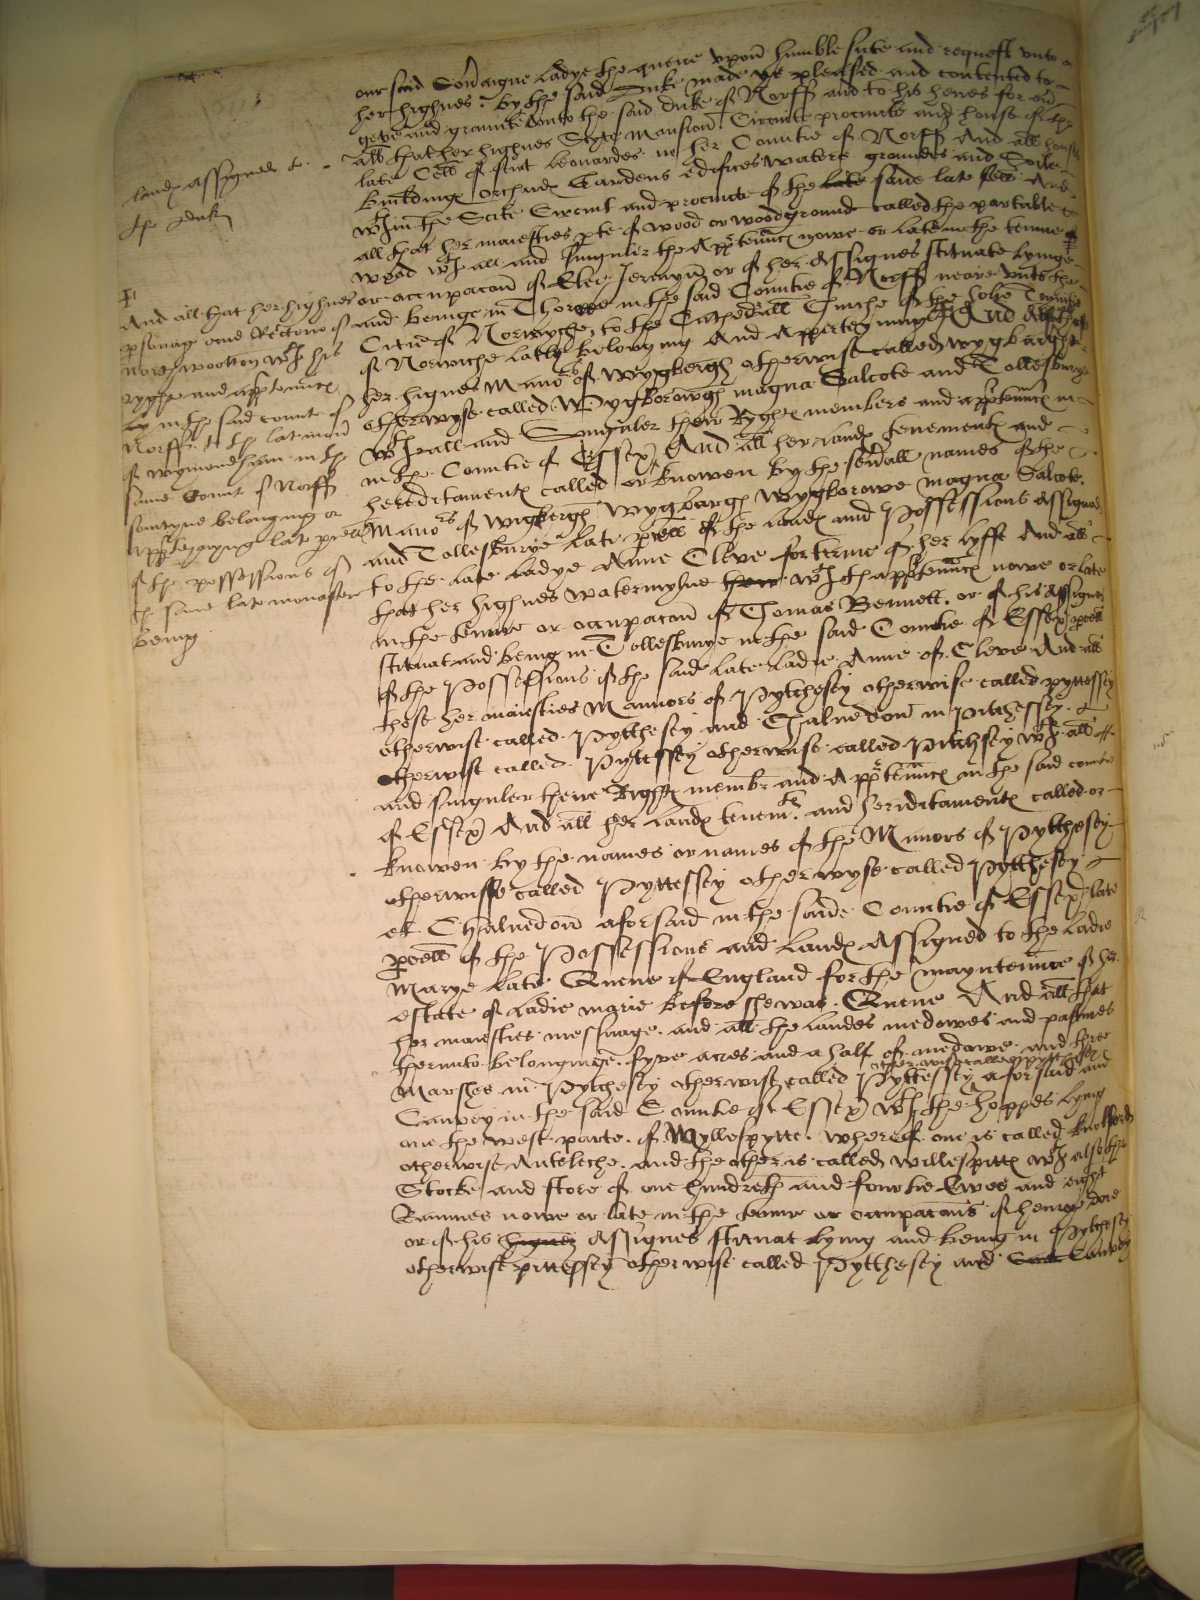 our said Sov'aigne Ladye the quene upon humble sute and request unto
her highnes by the said Duke made ys pleased and contented to
geve and graunte unto the said Duke of Norff and to his heires for ev'
all that her highnes Scyte Mansion Circuite procincte and house of the
late Cell of sint Leonardes in her Countie of Norff And all houses
buildings orchards Gardens edifices waters groundes and Soile
wthin the Scite Circuit and procincte of the late said late Cell And
all that her maiesties pte of wood or woodground called the portable
wood wth all and singuler the Apptenncs nowe or late in the tenure
or occupacon of Elen Jerenyn or of her Assignes situate lyinge
and beinge in Thorpe in the said Countie of Norff neare unto the
Citie of Norwyche to the Cathedrall Churche of the holie Trinitie
of Norwiche lately belonging And Apperteyninge And All that
her highnes Manors of Wygbergh otherwise called Wygbargh
otherwyse called Wygborowgh magna Salcote and Tollesburye
wth all and Singuler their Ryghts members and apptenncs in
in the Countie of Essex And all her lands tenements and
hereditaments called or knowen by the severall names of the
Manors of Wigbergh Wygbargh Wygborowe magna Salcote
and Tollesburye late pcell of the lands and Possessions Assigned
to the late Ladye Anne Cleve for terme of her lyffe And all
that her highnes watermylne wth thapptenncs nowe or late
in the tenure or occupacon of Thomas Bennett or of his Assignes
situat and being in Tollesburye in the said Countie of Essex pcell
of the Possessions of the said late Ladie Anne of Cleve And all
those her maiesties Mannors of Pytchesey otherwise called pyttessey
otherwise called Pytthesey and Chalnedon in pitchessey
otherwise called Pyttssey otherwise called Pitchsey wth all
and singuler there Rights membrs and Apptenncs in the said countie
of Essex And all her lands tenemts and heriditaments called or
knowen by the names or names of the Mannors of Pytchesey
otherwisse called Pyttessey otherwyse called Pytthesey
et Chalnedon aforsaid in the saide Countie of Essex late
pcell of the Possessions and lands Assigned to the Ladie
Marye late Quene of England for the mayntennce of her
estate of Ladie marie before she was Quene And all that
her maiesties messuage and all the landes medowes and pastures
therunto belonginge fyve acres and a half of medowe and three
otherwise called pytthesey
Marshes in Pytchesey otherwise called Pyttessey aforsaid and
Canvey in the said Countie of Essex wth the hoppes lying
one the west parte of Myllespytte wherof one is called
otherwise Anteleche and the other is called willespitts wth also the
Stocke and store of one hundreth and fourtie Ewes and eight
Rammes nowe or late in the tenure or occupacons of henry
or of his Assignes situat lying and being in Pytchesey
otherwise pittessey otherwise called Pytthesey and Canvey
lands assigned to
the Duke
And all that her highnes
psonage and Rectorie of
north wootton wth his
ryghts and apptenncs
ly in the said countie of
Norff to the late mon
of wymondham in the
same Count of Norff
somtyme belonging or
appteyning late pcell
of the possessions of
the same late monaster
being